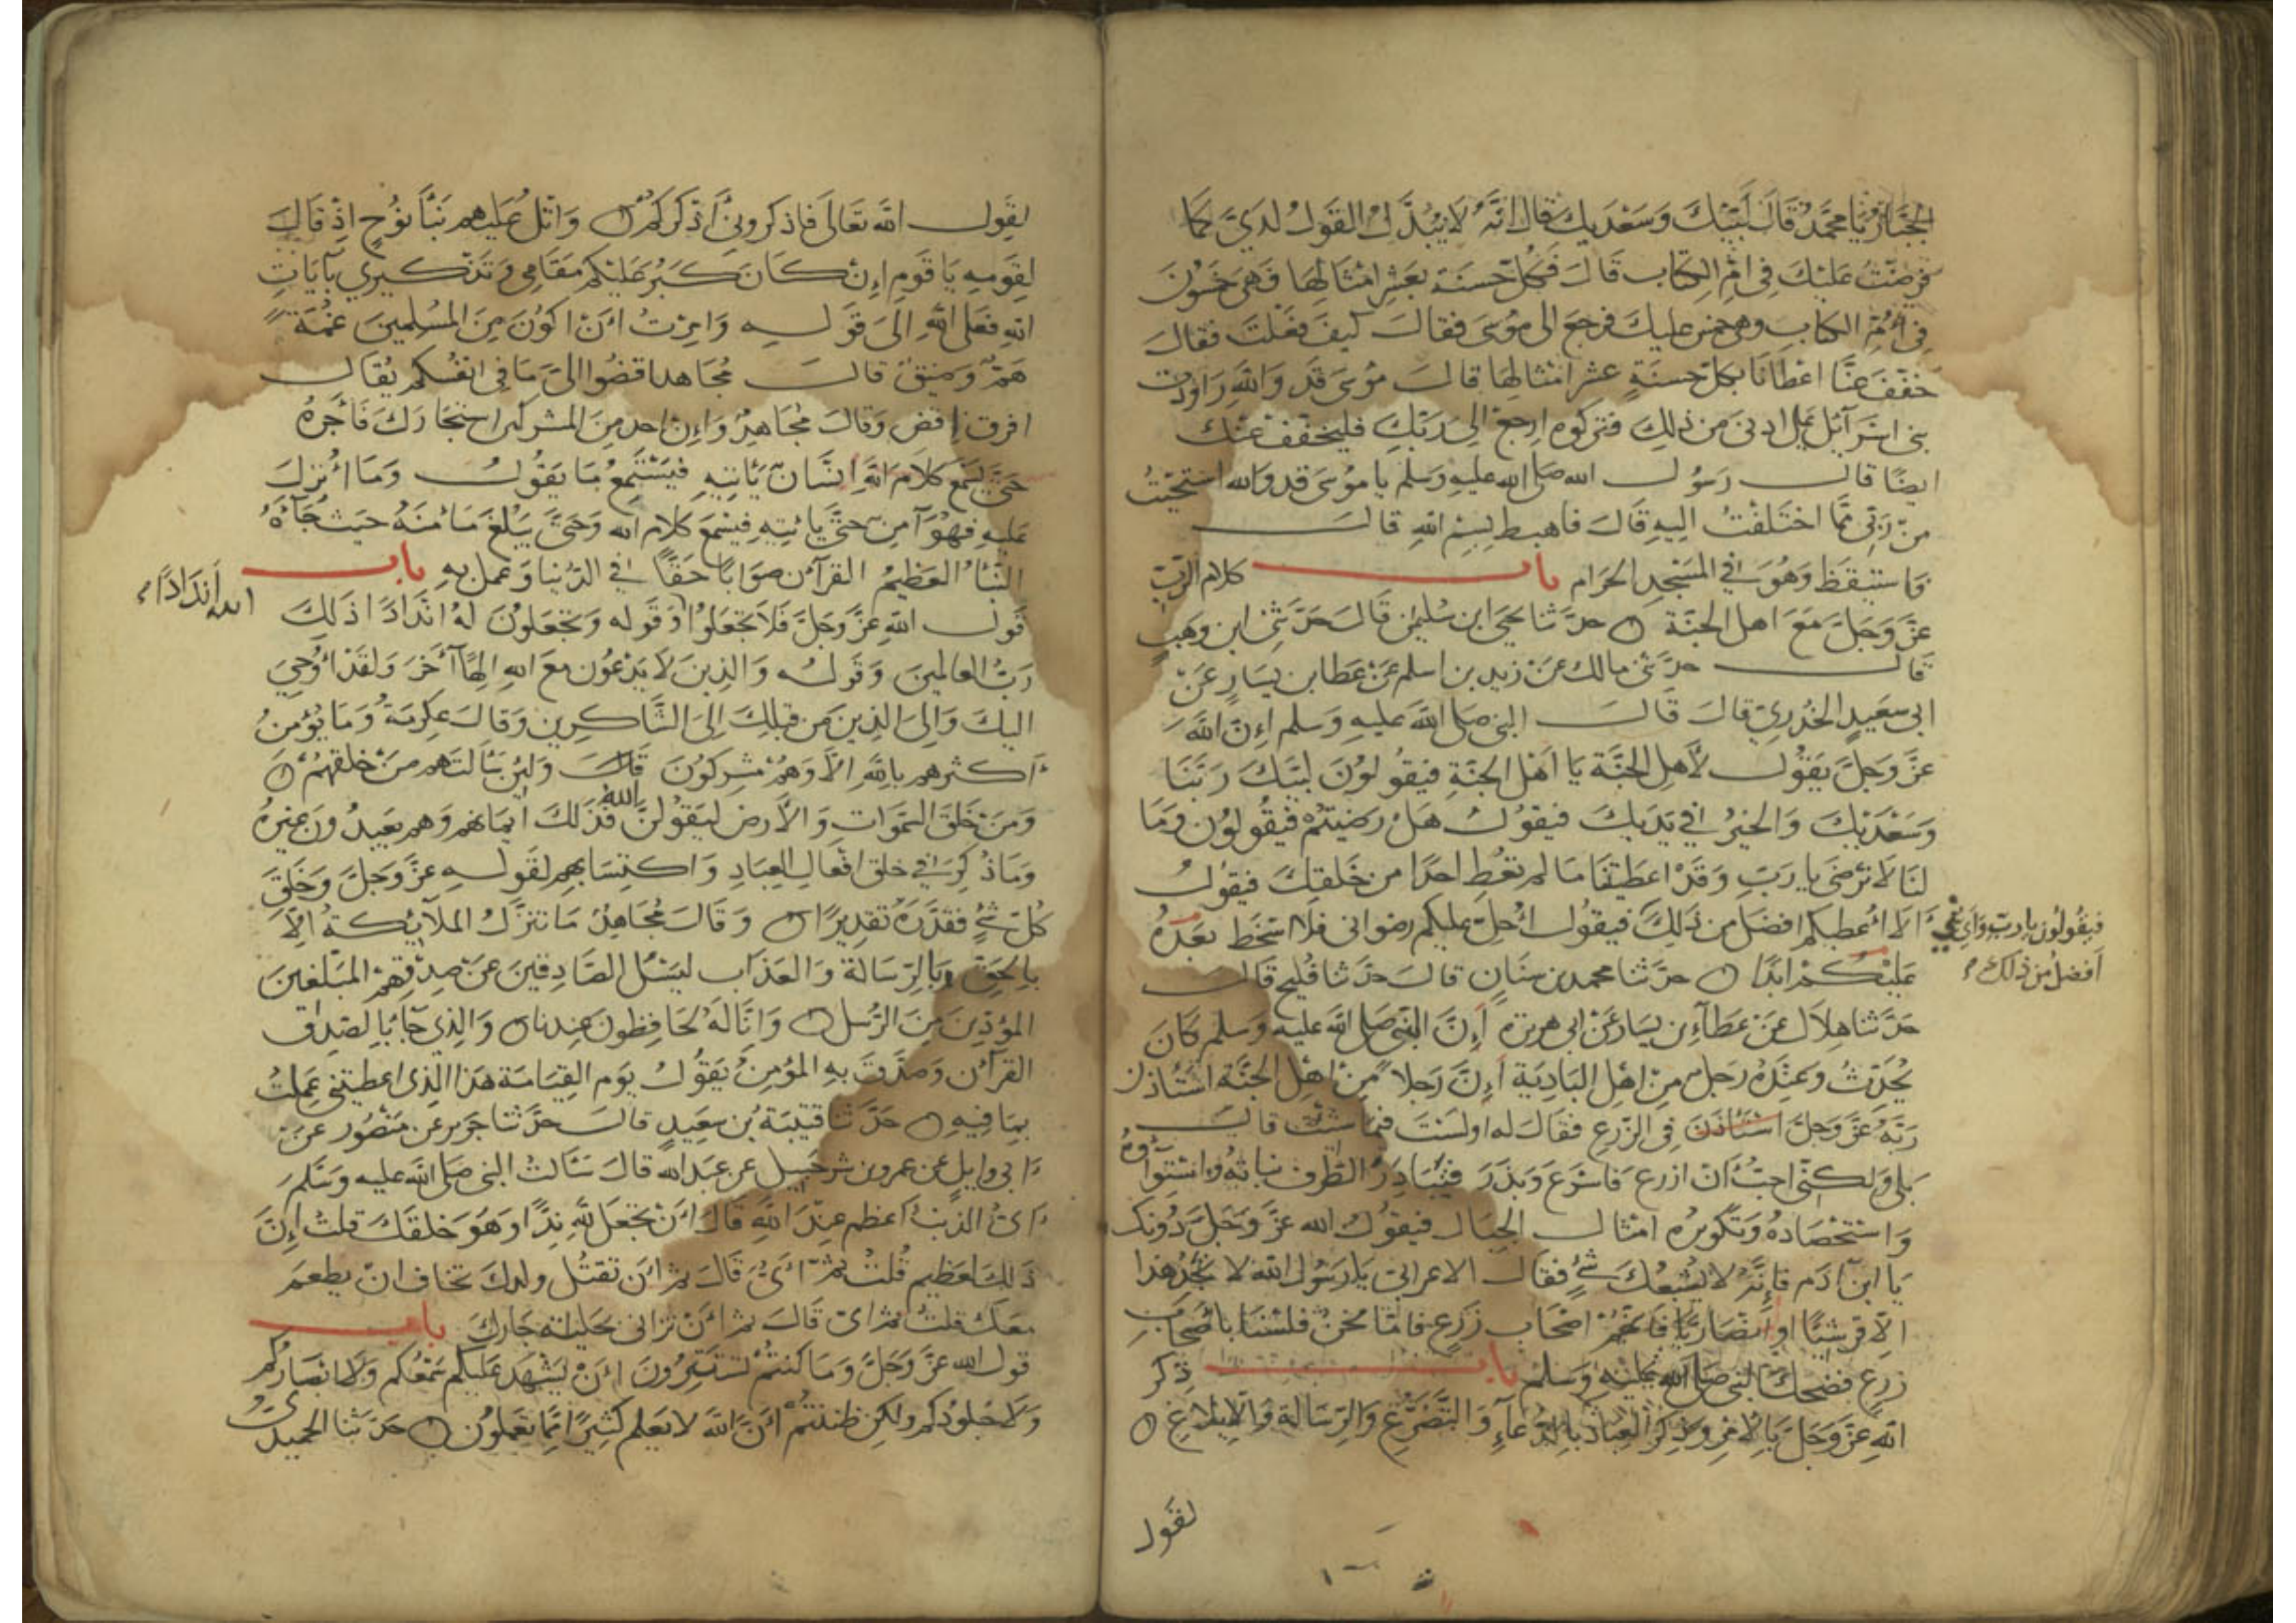 الجبار يا محمد قال لبيك وسعديك قال انه لا يبدل القول لدي كما
فرضت عليك في ام الكتاب قال فكل حسنة بعشر امثالها فهي خمسون
في أم الكتاب وهي خمس عليك فرجع الى موسى فقال كيف فعلت فقال
خفف عنا اعطانا بكل حسنة عشر امثالها قال موسى قد والله راودت
بني اسرآئيل على ادنى من ذلك فتركوه ارجع الى ربك فليخفف عنك
ايضا قال رسول الله صلى الله عليه وسلم يا موسى قد والله استحييت
من ربي مما اختلفت اليه قال فاهبط بسم الله قال
فاستيقظ وهو في المسجد الحرام باب كلام الرب
عز وجل مع اهل الجنة حدثنا يحيى ابن سليمن قال حدثني ابن وهب
قال حدثني مالك عن زيد بن اسلم عن عطا بن يسار عن
ابي سعيد الخدري قال قال النبي صلى الله عليه وسلم إن الله
عز وجل يقول لأهل الجنة يا اهل الجنة فيقولون لبيك ربنا
وسعديك والخير في يديك فيقول هل رضيتم فيقولون وما
لنا لا نرضى يا رب وقد اعطيتنا ما لم تعط احدا من خلقك فيقول
ألا أعطيكم افضل من ذلك فيقول أحل عليكم رضواني فلا اسخط بعده
فيقولون يا رب واي شي
أفضل من ذلك
عليكم ابدا حدثنا محمد بن سنان قال حدثنا فليح قال
حدثنا هلال عن عطآء بن يسار عن ابي هريرة أن النبي صلى الله عليه وسلم كان
يحدث وعنده رجل من اهل البادية أن رجلا من اهل الجنة استأذن
ربه عز وجل استأذن في الزرع فقال له اولست فيما شئت قال
بلى ولكني احب أن ازرع فاسرع وبذر فيبادر الطرف نباته واستوآؤه
واستحصاده وتكويره امثال الجبال فيقول الله عز وجل دونك
يا ابن آدم فإنه لا يشبعك شئ فقال الاعرابي يا رسول الله لا تجد هذا
الا قرشيا او انصاريا فانهم اصحاب زرع فاما نحن فلسنا باصحاب
زرع فضحك النبي صلى الله عليه وسلم باب ذكر
الله عز وجل بالامر وذكر العباد بالدعآء والتضرع والرسالة والابلاغ
لقول
لقول الله تعالى فاذكروني أذكركم واتل عليهم نبأ نوح اذ قال
لقومه يا قوم إن كان كبر عليكم مقامي وتذكيري بآيات
الله فعلى الله الى قوله وامرت أن اكون من المسلمين غمة
هم وضيق قال مجاهد اقضوا الي ما في انفسكم يقال
افرق اقض وقال مجاهد وإن احد من المشركين استجارك فأجره
حتى يسمع كلام الله إنسان يأتيه فيستمع ما يقول وما أنزل
عليه فهو آمن حتى يأتيه فيسمع كلام الله وحتى يبلغ مأمنه حيث جآءه
النبأ العظيم القرآن صوابا حقا في الدنيا وعمل به باب
قول الله عز وجل فلا تجعلوا وقوله وتجعلون له اندادا ذلك
لله أندادا
رب العالمين وقوله والذين لا يدعون مع الله الها آخر ولقد أوحي
اليك والى الذين من قبلك الى الشاكرين وقال عكرمة وما يؤمن
أكثرهم بالله الا وهم مشركون قال ولئن سألتهم من خلقهم
ومن خلق السموات والأرض ليقولن الله فذلك ايمانهم وهم يعبدون غيره
وما ذكر في خلق افعال العباد واكتسابهم لقوله عز وجل وخلق
كل شئ فقدره تقديرا وقال مجاهد ما تنزل الملآئكة الا
بالحق وبالرسالة والعذاب ليسئل الصادقين عن صدقهم المبلغين
المؤدين من الرسل وانا له لحافظون عندنا والذي جآء بالصدق
القرآن وصدق به المؤمن يقول يوم القيامة هذا الذي اعطيتني عملت
بما فيه حدثنا قتيبة بن سعيد قال حدثنا جرير عن منصور عن
ابي وايل عن عمرو بن شرحبيل عن عبد الله قال سألت النبي صلى الله عليه وسلم
أي الذنب أعظم عند الله قال أن تجعل لله ندا وهو خلقك قلت إن
ذلك لعظيم قلت ثم أي قال ثم أن تقتل ولدك تخاف ان يطعم
معك قلت ثم اي قال ثم أن تزاني بحليلة جارك باب
قول الله عز وجل وما كنتم تستترون أن يشهد عليكم سمعكم ولا ابصاركم
ولا جلودكم ولكن ظننتم أن الله لا يعلم كثيرا مما تعملون حدثنا الحميدي